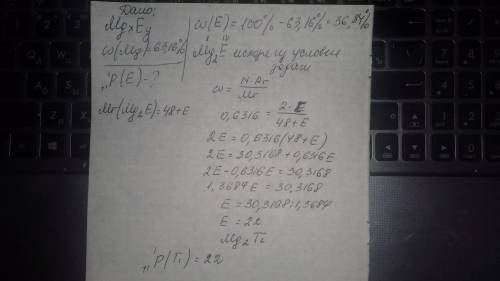 Дано:
MgxEy
ω(Mg)=63,16%
"P(E)-?
Mr(Mg₂E)=48+E
ω(E)=100%-63,16%=36,84%
Mg₂E исходя из условия
задачи
ω= N·Ar/Mr
0,6316 = 2·E/48+E
2E=0,6316(48+E)
2E=30,3168+0,6316E
2E-0,6316E=30,3168
1,3684E=30,3168
E=30,3168:1,3684
E=22
Mg₂Ti
"P(Ti)=22